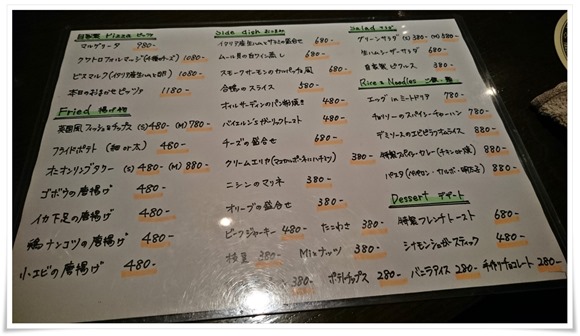 自家製 Pizza ピッツァ
マルゲリータ 980-
クワトロフォルマージ(4種のチーズ) 1080-
ビスマルク(イタリア産生ハムと卵) 1080-
本日のおまかせピッツァ 1180-
Fried 揚げ物
英国風フィッシュ&チップス (S)480- (M)780-
フライドポテト (細or太) 460-
オニオンリングタワー (S)480- (M)880-
ゴボウの唐揚げ 480-
イカ下足の唐揚げ 480-
鶏ナンコツの唐揚げ 480-
小エビの唐揚げ 480-
Side dish おつまみ
イタリア産生ハムとサラミの盛合せ 680-
ムール貝の白ワイン蒸し 680-
スモークサーモンのカルパッチョ風 680-
合鴨のスライス 580-
オイルサーディンのパン粉焼き 480-
バイエルンとガーリックトースト 480-
チーズの盛合せ 680-
クリームエリカ 380-
ニシンのマリネ 380-
オリーブの盛合せ 380-
ビーフジャーキー 480- たこわさ 380-
枝豆 380- Mixナッツ 380-
380- ポテトチップス 280- バニラアイス 280- 手作りチョコレート 280-
Salad サラダ
グリーンサラダ (S)380- (M)580-
生ハムシーザーサラダ 680-
自家製ピクルス 380-
Rice & Noodles ご飯・麺
エッグinミートドリア 780-
チョリソーのスパイシーチャーハン 780-
デミソースのエビピラフオムライス 880-
特製スパイシーカレー(チキンor焼) 880-
パスタ 880-
Dessert デザート
特製フレンチトースト 680-
シナモンシュガースティック 480-